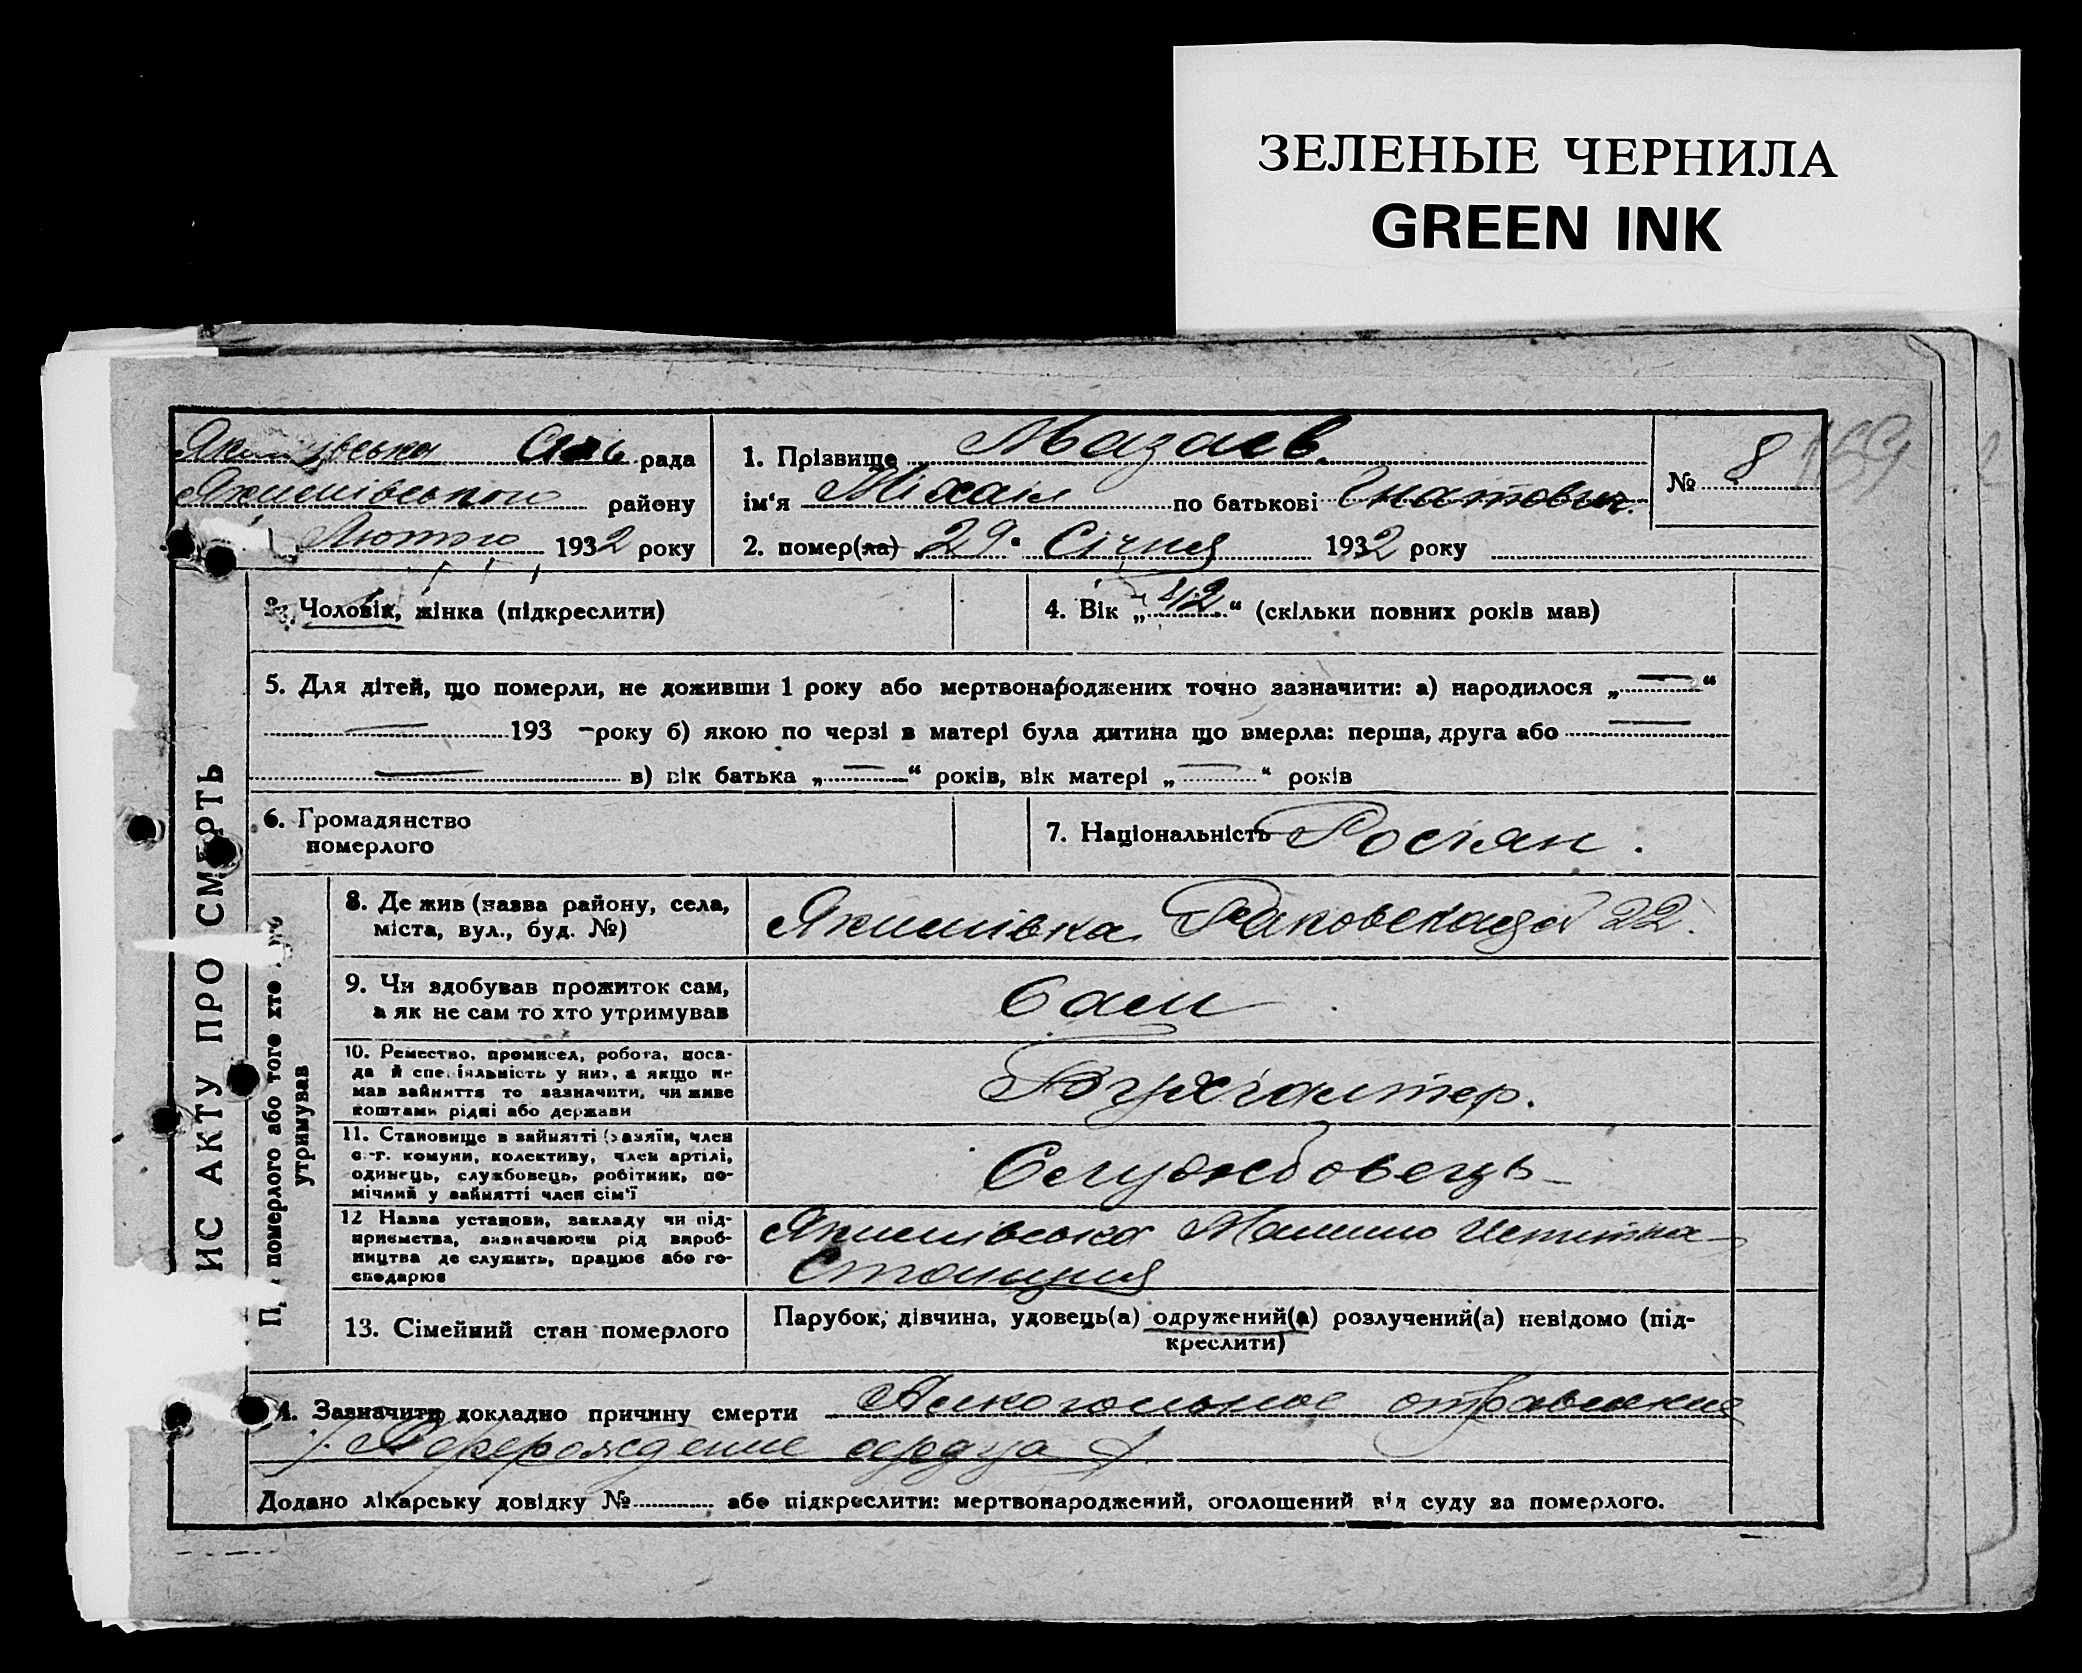 ЗЕЛЕНЫЕ ЧЕРНИЛА
GREEN INK
рада
Якимівського району
Лютого 1932 року
1. Прізвище Мазаев.
ім'я Міхаіл по батькові Гнатович.
2. помер(ла) 29 Січня 1932 року
№ 8
169
3. Чоловік, жінка (підкреслити)
4. Вік „42“ (скільки повних років мав)
5. Для дітей, що померли, не доживши 1 року або мертвонароджених точно зазначити: а) народилося „—“
— 193 — року б) якою по черзі в матері була дитина що вмерла: перша, друга або —
— в) вік батька „—“ років, вік матері „—“ років
6. Громадянство
померлого
7. Національність Росіян.
ИС АКТУ ПРО СМЕРТЬ
померлого або того хто
утримував
8. Де жив (назва району, села,
міста, вул., буд. №)
Якимівка Раковскаго 22.
9. Чи здобував прожиток сам,
а як не сам то хто утримував
Сам
10. Ремество, промисел, робота, поса-
да й спеціяльність у них, а якщо не
мав зайняття то зазначити, чи живе
коштами рідні або держави
Бухгалтер.
11. Становище в зайнятті (хазяїн, член
с.-г. комуни, колективу, член артілі,
одинець, службовець, робітник, по-
мічний у зайнятті член сім'ї
Службовець
12 Назва установи, закладу чи під-
приємства, визначаючи рід вироб-
ництва де служить, працює або го-
сподарює
Якимівська Машино
Станция
13. Сімейний стан померлого
Парубок, дівчина, удовець(а) одружений(а) розлучений(а) невідомо (під-
креслити)
4. Зазначити докладно причину смерти Алкогольное отравление
/. Перерождение сердца /.
Додано лікарську довідку № або підкреслити: мертвонароджений, оголошений від суду за померлого.